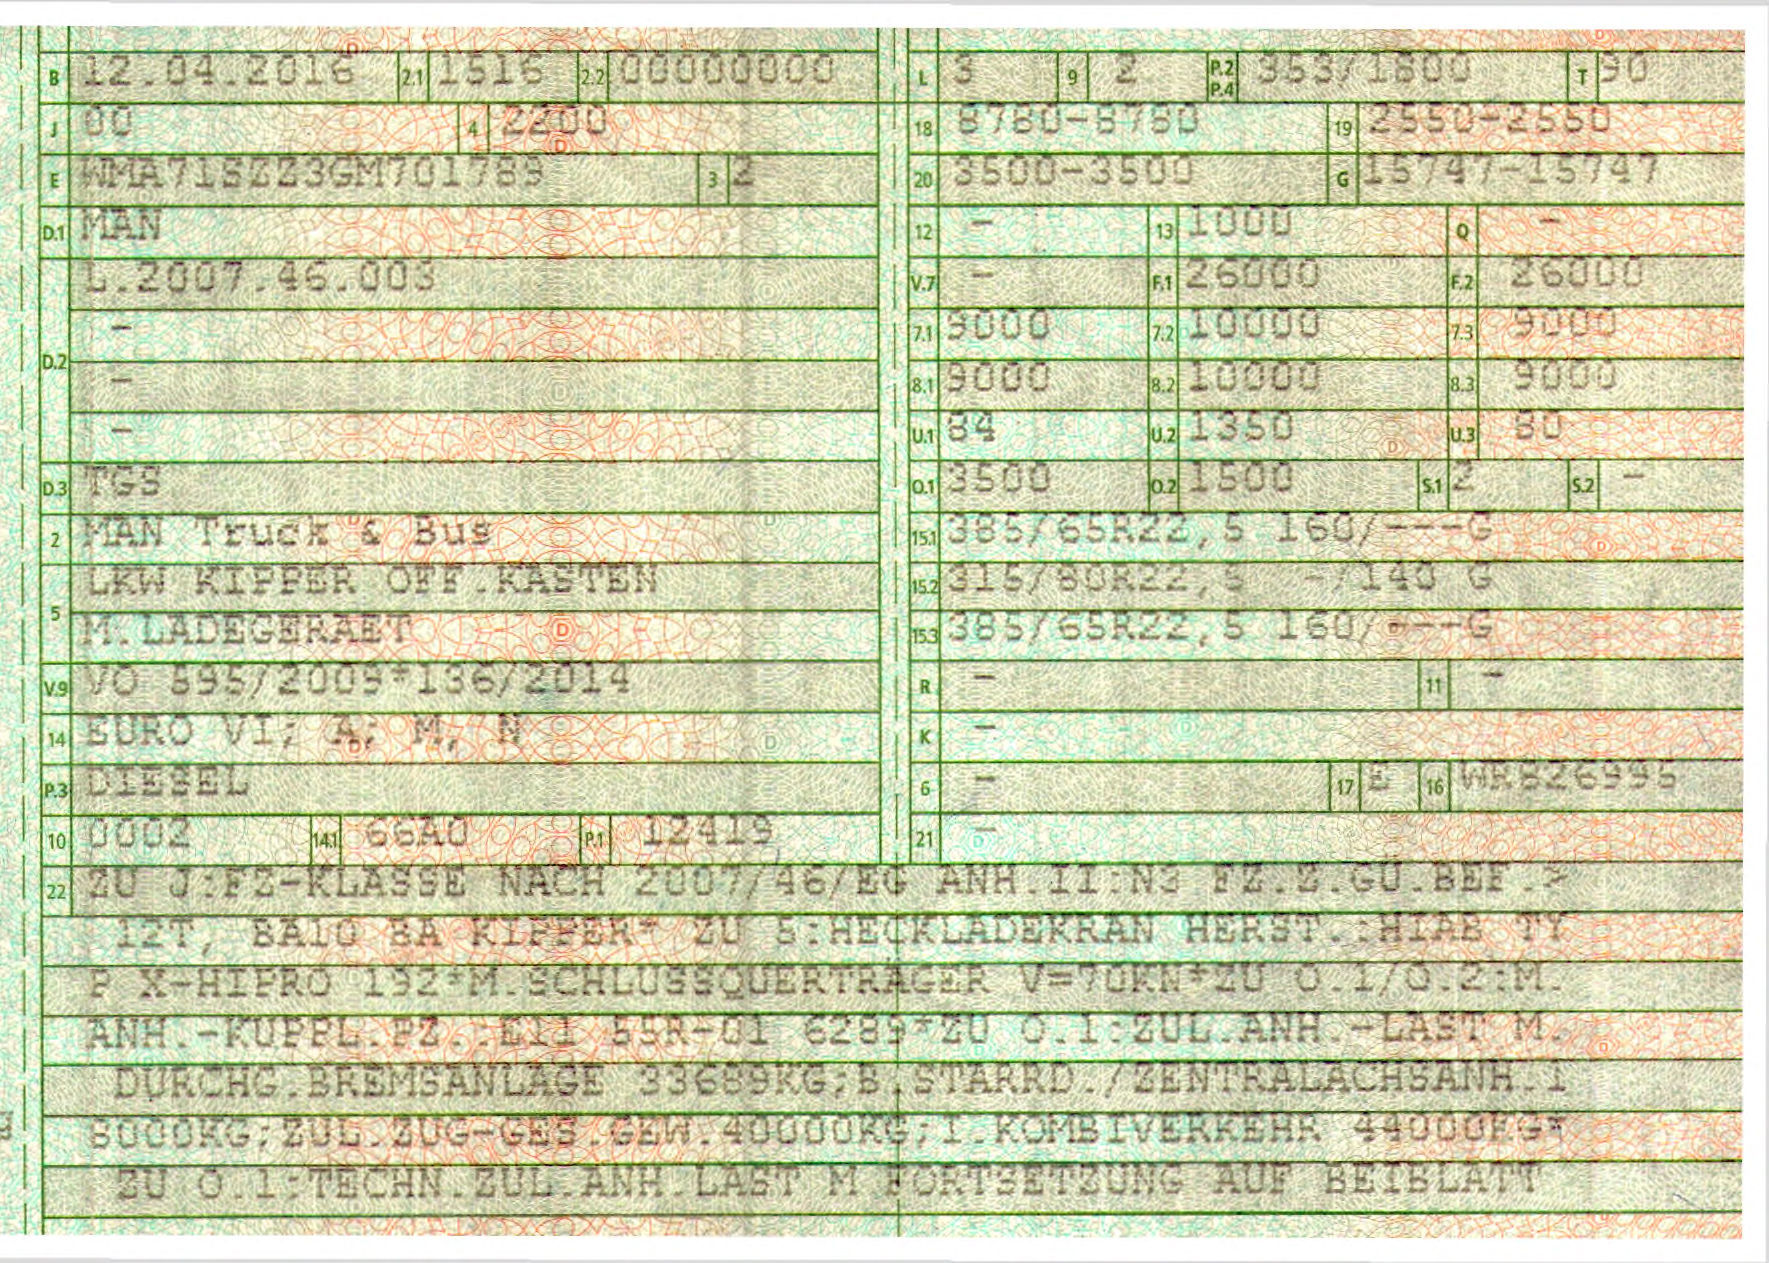 B 12.04.2016 2.1 1516 2.2 00000000
J 00 4 2200
E WMA71SZZ3GM701789 3 2
D.1 MAN
L.2007.46.003
-
D.2
-
-
D.3 TGS
2 MAN Truck & Bus
LKW KIPPER OFF.KASTEN
5
M.LADEGERAET
V.9 VO 595/2009*136/2014
14 EURO VI; A; M, N
P.3 DIESEL
10 0002 14.1 66A0 P.1 12419
L 3 9 2 P.2 P.4 353/1800 T 90
18 8780-8780 19 2550-2550
20 3500-3500 G 15747-15747
12 - 13 1000 Q -
V.7 - F.1 26000 F.2 26000
7.1 9000 7.2 10000 7.3 9000
8.1 9000 8.2 10000 8.3 9000
U.1 84 U.2 1350 U.3 80
O.1 3500 O.2 1500 S.1 2 S.2 -
15.1 385/65R22,5 160/---G
15.2 315/80R22,5 -/140 G
15.3 385/65R22,5 160/---G
R - 11 -
K -
6 - 17 E 16 WR826995
21 -
22 ZU J:FZ-KLASSE NACH 2007/46/EG ANH.II:N3 FZ.Z.GÜ.BEF.>
12T, BA10 BA KIPPER* ZU 5:HECKLADEKRAN HERST.:HIAB TY
P X-HIPRO 192*M.SCHLUSSQUERTRÄGER V=70KN*ZU O.1/O.2:M.
ANH.-KUPPL.PZ.:E11 55R-01 6289*ZU O.1:ZUL.ANH.-LAST M.
DURCHG.BREMSANLAGE 33689KG;B.STARRD./ZENTRALACHSANH.1
8000KG;ZUL.ZUG-GES.GEW.40000KG;I.KOMBIVERKEHR 44000KG*
ZU O.1:TECHN.ZUL.ANH.LAST M FORTSETZUNG AUF BEIBLATT